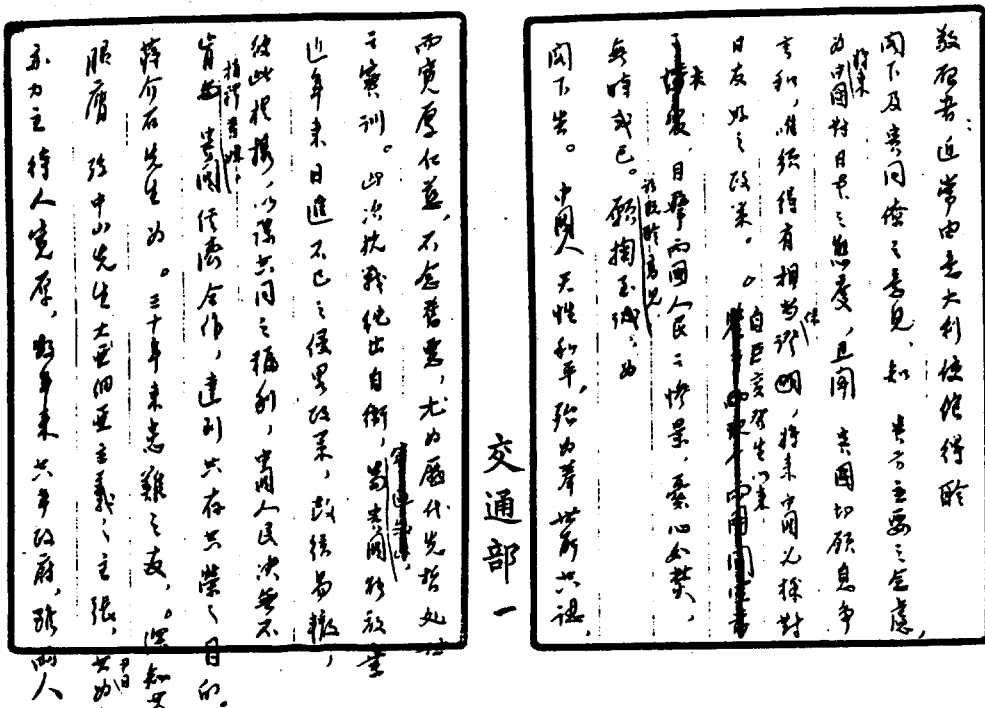 敬啓者：近常由意大利使館得聆
閣下及貴同僚之意見，知 貴方主要之企慮，
為中國將來對日本之態度，且聞 貴國切願息爭
言和，唯須得有相當保證明，將來中國必採對
日友好之政策。。自巨變發生以來
目擊兩國人民之慘景，憂心如焚，
無時或已。願掬至誠，為
閣下告。中國人天性和平，殆為舉世所共認，
而寬厚仁慈，不念舊惡，尤為歷代先哲處世
之寶訓。此次抗戰純出自衛，苟貴國能放棄
近年來日進不已之侵略政策，改弦易轍，
彼此提攜，以謀共同之福利，中國人民決無不
肯與 貴國經濟合作，達到共存共榮之目的。
蔣介石先生為。三十年來患難之友，。深知其
服膺 孫中山先生大亞細亞主義之主張，
亦力主待人寬厚，數年來共事政府，雖兩人
交通部